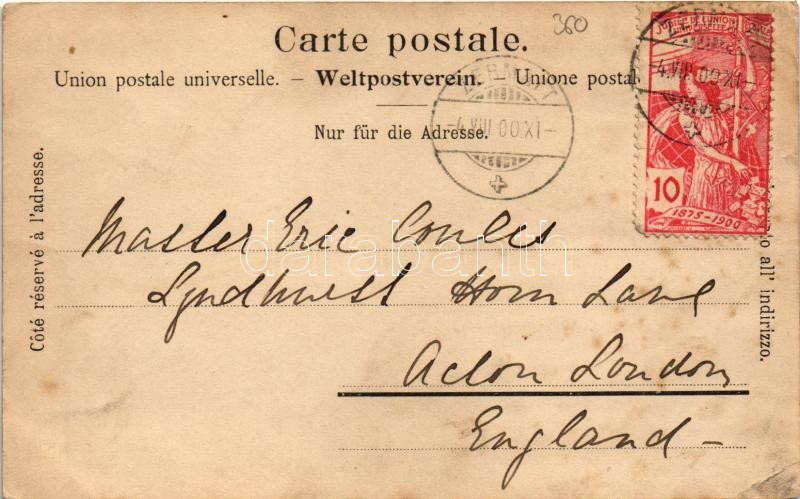 360
Carte postale.
Union postale universelle. – Weltpostverein. – Unione postal
Nur für die Adresse.
Côté réservé à l'adresse.
ZERMATT
–4.VIII.00.XI–
JUBILÉ DE L'UNION
–4.VIII.00.XI–
10
1875–1900
Master Eric Coules
Lyndhurst Horn Lane
Acton London
England –
o all' indirizzo.
darabanth